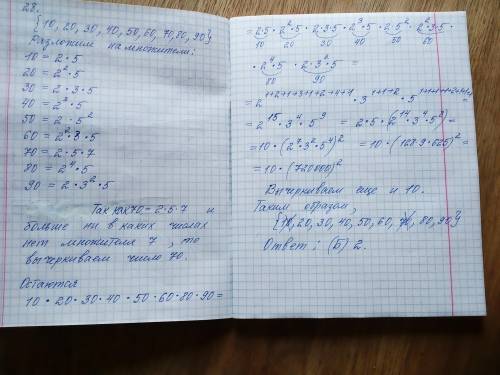 28.
{10, 20, 30, 40, 50, 60, 70, 80, 90}
Разложим на множители:
10 = 2 · 5
20 = 2² · 5
30 = 2 · 3 · 5
40 = 2³ · 5
50 = 2 · 5²
60 = 2² · 3 · 5
70 = 2 · 5 · 7
80 = 2⁴ · 5
90 = 2 · 3² · 5
Так как 70 = 2 · 5 · 7 и
больше ни в каких числах
нет множителя 7, то
вычеркиваем число 70.
Остаются
10 · 20 · 30 · 40 · 50 · 60 · 80 · 90 =
= 2·5 · 2²·5 · 2·3·5 · 2³·5 · 2·5² · 2²·3·5 ·
10 20 30 40 50 60
· 2⁴·5 · 2·3²·5 =
80 90
= 2¹⁺²⁺¹⁺³⁺¹⁺²⁺⁴⁺¹ · 3¹⁺¹⁺² ·
= 2¹⁵ · 3⁴ · 5⁹ = 2 · 5 · (2¹⁴ · 3⁴ · 5⁸) =
= 10 · (2⁷ · 3² · 5⁴)² = 10 · (128 · 9 · 625)² =
= 10 · (720000)²
Вычеркиваем еще и 10.
Таким образом,
{10, 20, 30, 40, 50, 60, 70, 80, 90}
Ответ: (Б) 2.